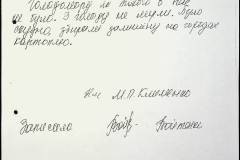 Голодомору як такого в нас
не було. З голоду не мерли. Було
скрутно, збирали залишену на городах
картоплю.
М П Клименко
Записала